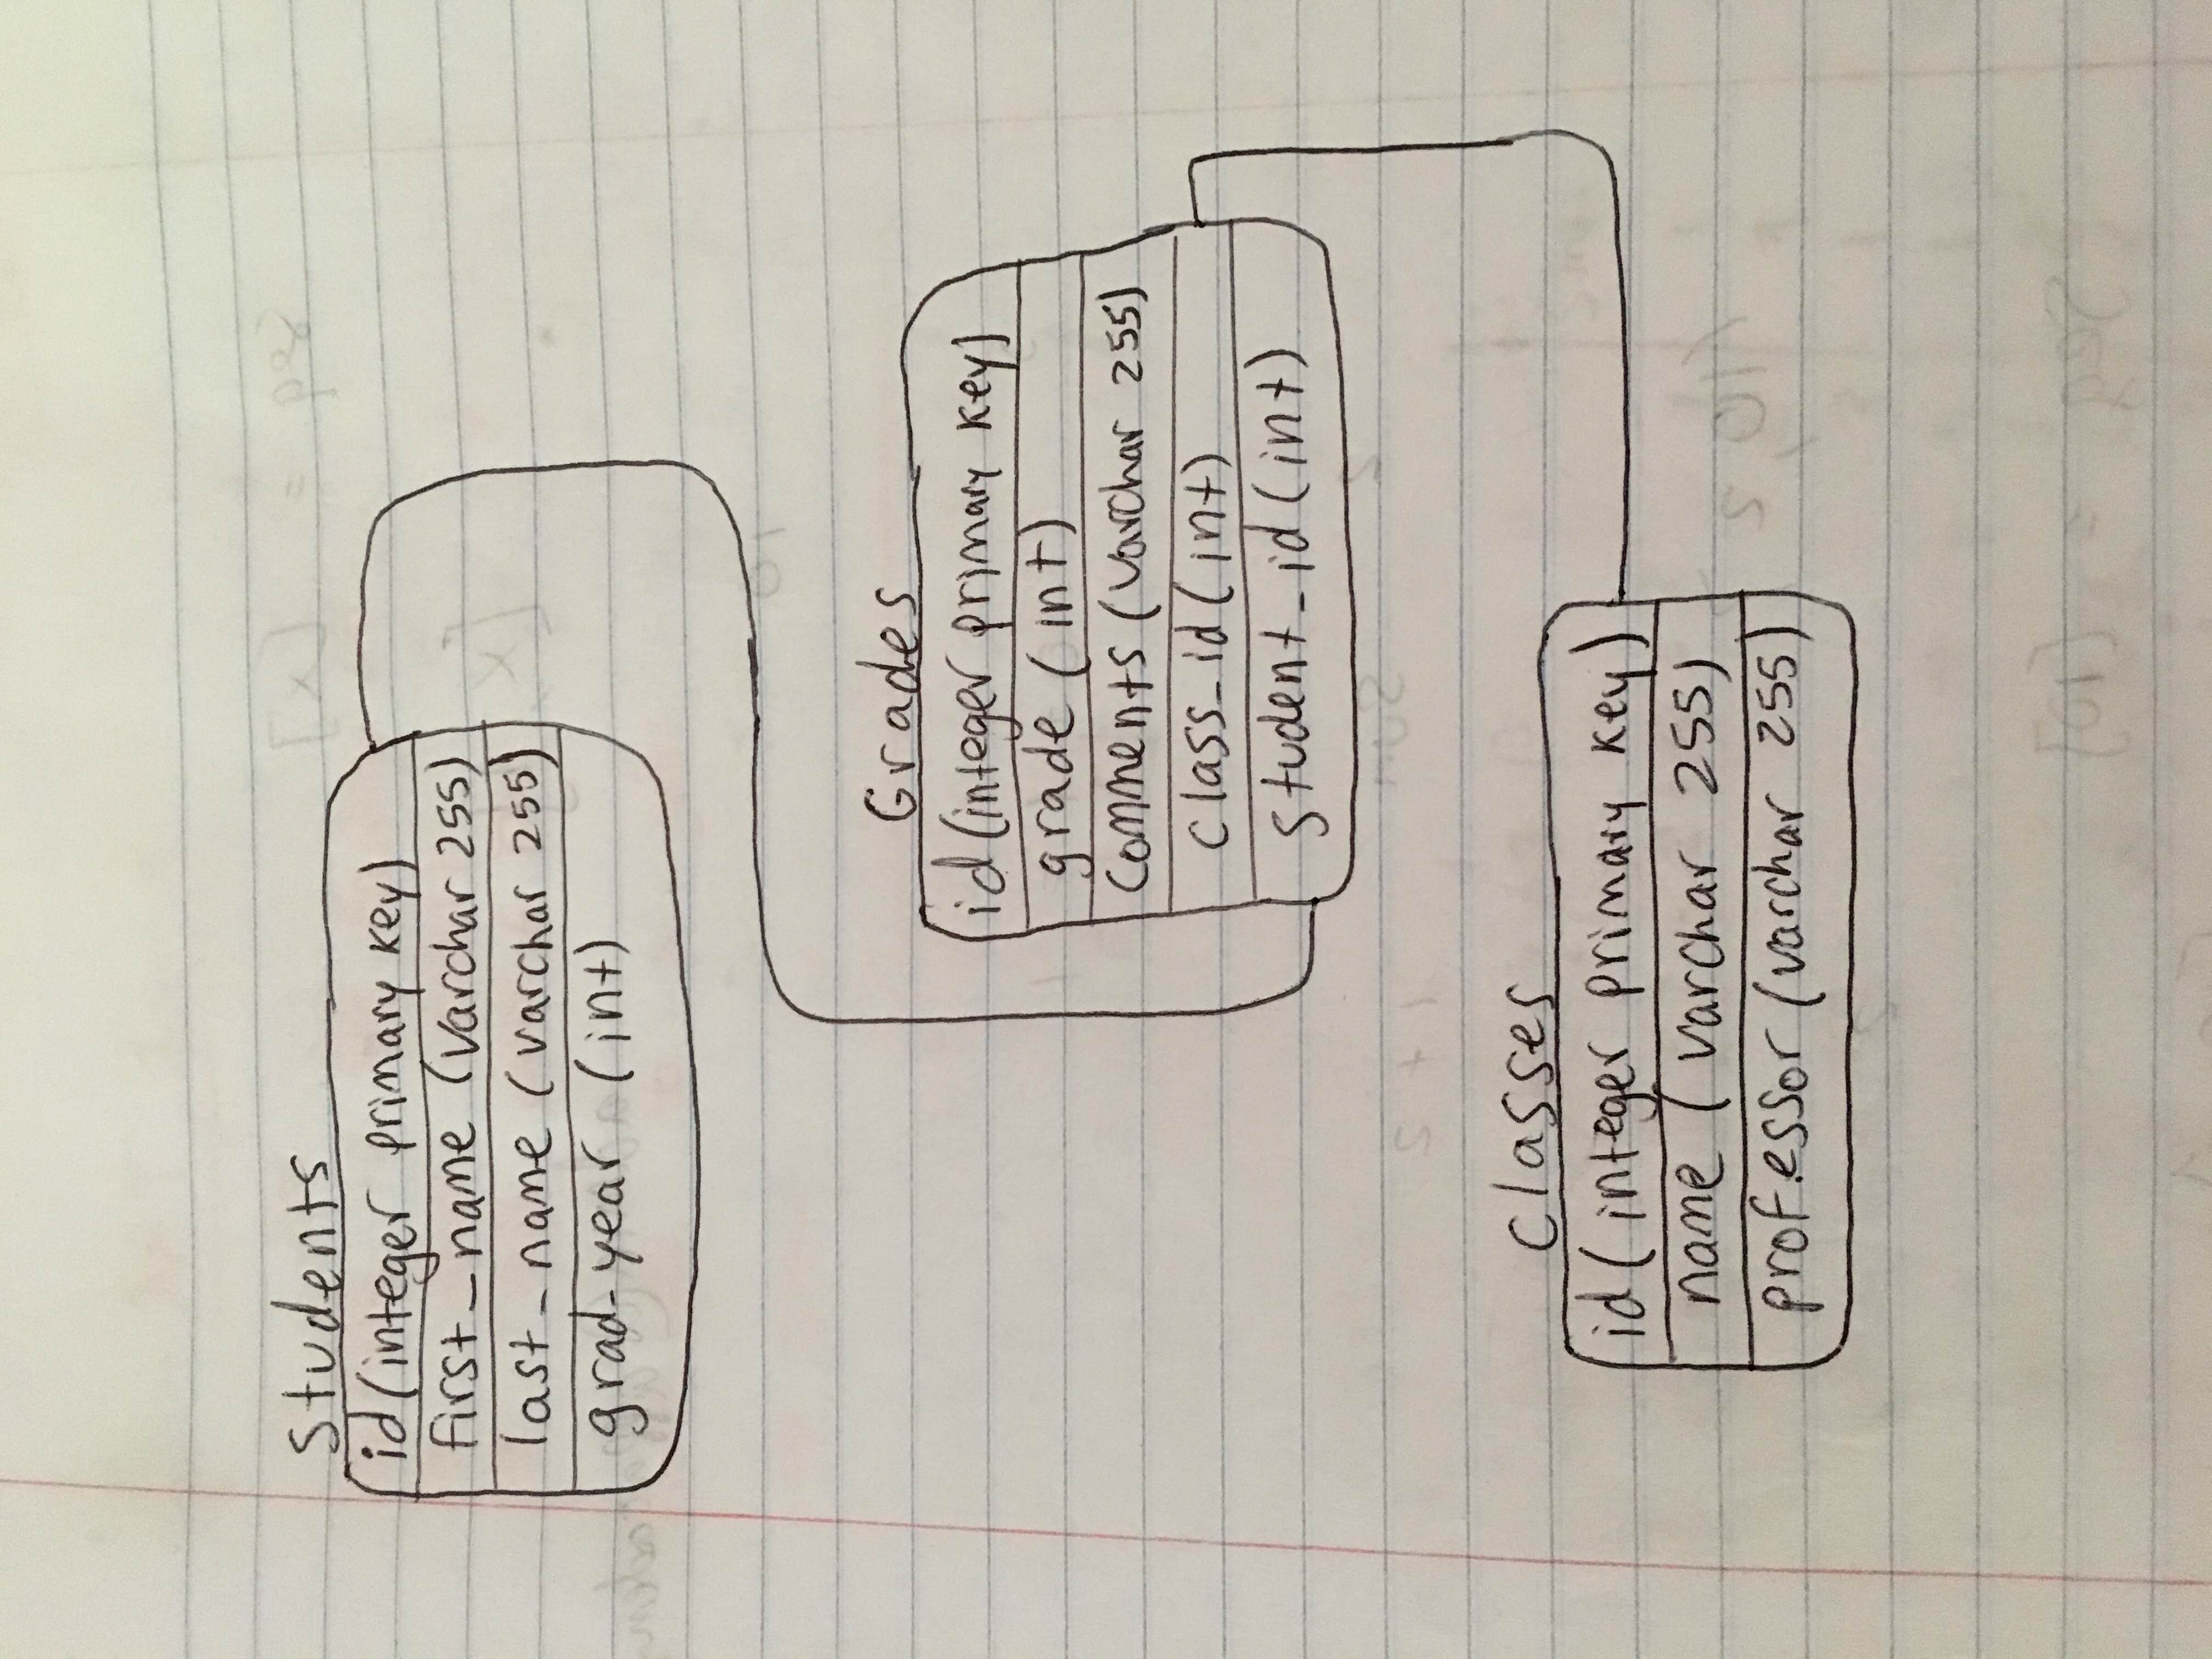 Students
id (integer primary key)
first_name (varchar 255)
last_name (varchar 255)
grad-year (int)
Grades
id (integer primary key)
grade (int)
comments (varchar 255)
class_id (int)
student_id (int)
classes
id (integer primary key)
name (varchar 255)
professor (varchar 255)